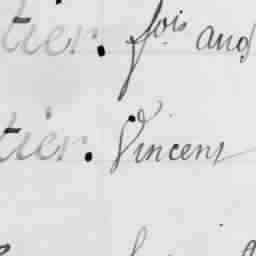 tier. fois and
tier. Vincent